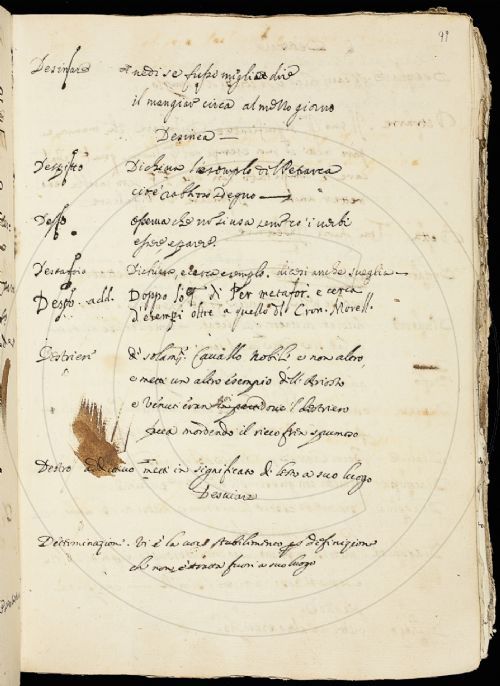 99
Desinare Vedi se fusse meglio dire
il mangiar circa al mezzo giorno
Desinea
Despitto Dichiara l'esempio di Petrarca
cioè
Desso osserva che non si usa senõ cõ i verbi
essere e parere.
Destatoio Dichiara, e cerca esempio, diresi anche sveglia
Desto. add. Doppo di Per metafor. e cerca
d'esempi oltre a quello di Cron. Morell.
Destriere di solamẽ. Cavallo nobile e non altro
e metti un altro esempio dell'Ariosto
e Venuti eran dove il destriero
facea mordendo il ricco fren spumoso
Destro addiettivo metti in significato di lesto a suo luogo
Desviare
Determinazione. Vi è la voce stabilimento p̱ definizione
che non è tirata fuori a suo luogo